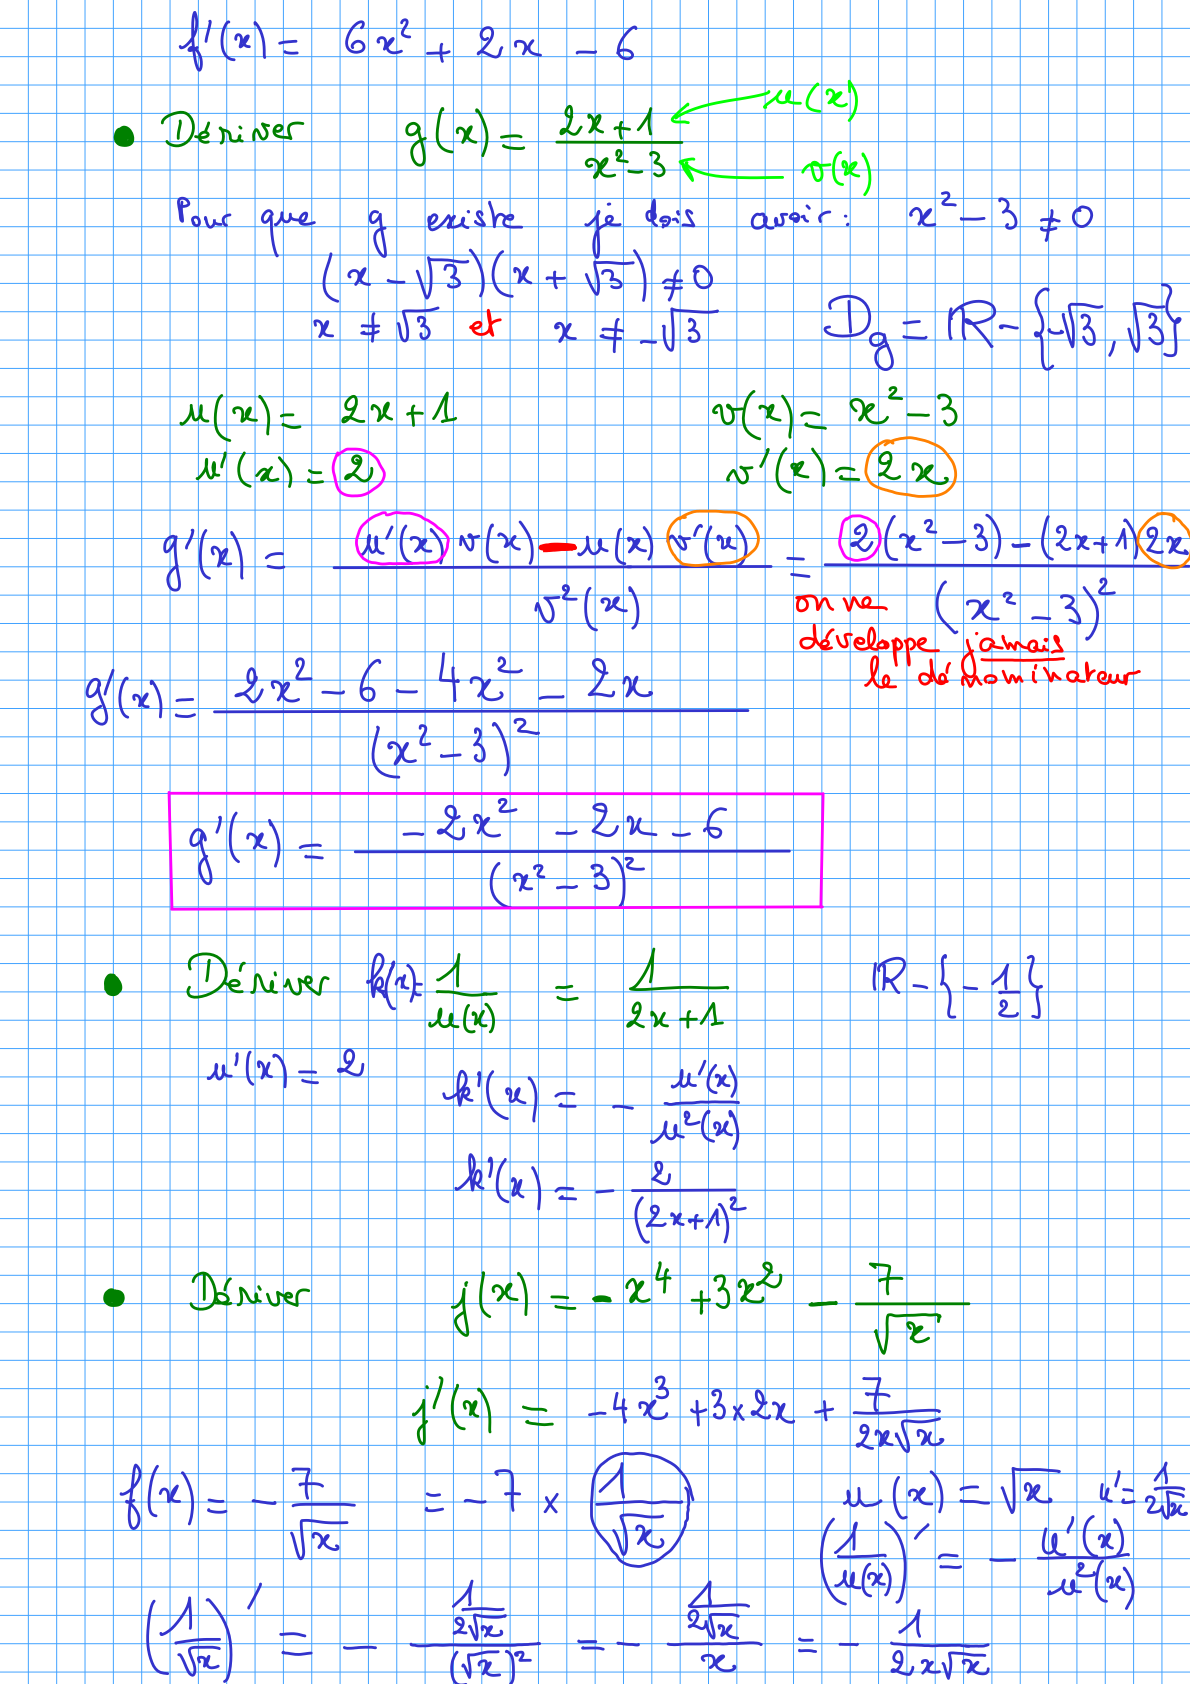 f'(x) = 6x² + 2x - 6
• Dériver g(x) = (2x+1)/(x²-3) ← u(x) ← v(x)
Pour que g existe je dois avoir : x² - 3 ≠ 0
(x - √3)(x + √3) ≠ 0
x ≠ √3 et x ≠ -√3 D_g = ℝ - {-√3, √3}
u(x) = 2x+1 v(x) = x² - 3
u'(x) = 2 v'(x) = 2x
g'(x) = (u'(x) v(x) - u(x) v'(x))/(v²(x)) = (2(x² - 3) - (2x+1)2x)/((x² - 3)²)
on ne
développe jamais
le dénominateur
g'(x) = (2x² - 6 - 4x² - 2x)/((x² - 3)²)
g'(x) = (-2x² - 2x - 6)/((x² - 3)²)
• Dériver k(x) = 1/(u(x)) = 1/(2x+1) ℝ - {-1/2}
u'(x) = 2 k'(x) = - (u'(x))/(u²(x))
k'(x) = - 2/((2x+1)²)
• Dériver j(x) = -x⁴ + 3x² - 7/√x
j'(x) = -4x³ + 3×2x + 7/(2x√x)
f(x) = - 7/√x = - 7 × 1/√x u(x) = √x u' = 1/(2√x)
(1/(u(x)))' = - (u'(x))/(u²(x))
(1/√x)' = - (1/(2√x))/((√x)²) = - (1/(2√x))/x = - 1/(2x√x)